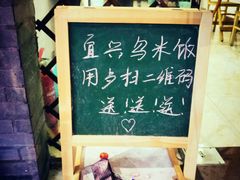 宜兴乌米饭
用点扫二维码
送!送!送!
♡